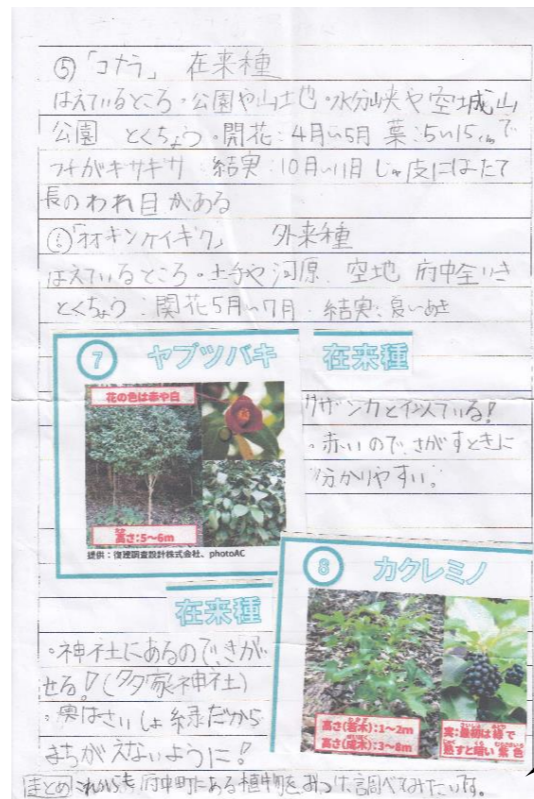 ⑤「コナラ」 在来種
はえているところ・公園や山土也・水分峡や空城山
公園 とくちょう・開花:4月〜5月 葉:5〜15cmで
フチがギザギザ 結実:10月〜11月 じゅ皮にはたて
長のわれ目がある
⑥「オオキンケイギク」 外来種
はえているところ・土手や河原 空地 府中全いき
とくちょう:開花5月〜7月 結実:夏〜あき
⑦ ヤブツバキ 在来種
花の色は赤や白
高さ:5〜6m
提供:復建調査設計株式会社、photoAC
サザンカと似ている!
・赤いので、さがすときに
分かりやすい。
⑧ カクレミノ
在来種
高さ(若木):1〜2m
高さ(成木):3〜8m
実:最初は緑で
熟すと暗い紫色
・神社にあるので、さが
せる!(多家神社)
・実はさいしょ緑だから
まちがえないように!
まとめ これからも府中町にある植物をもっと調べてみたいです。